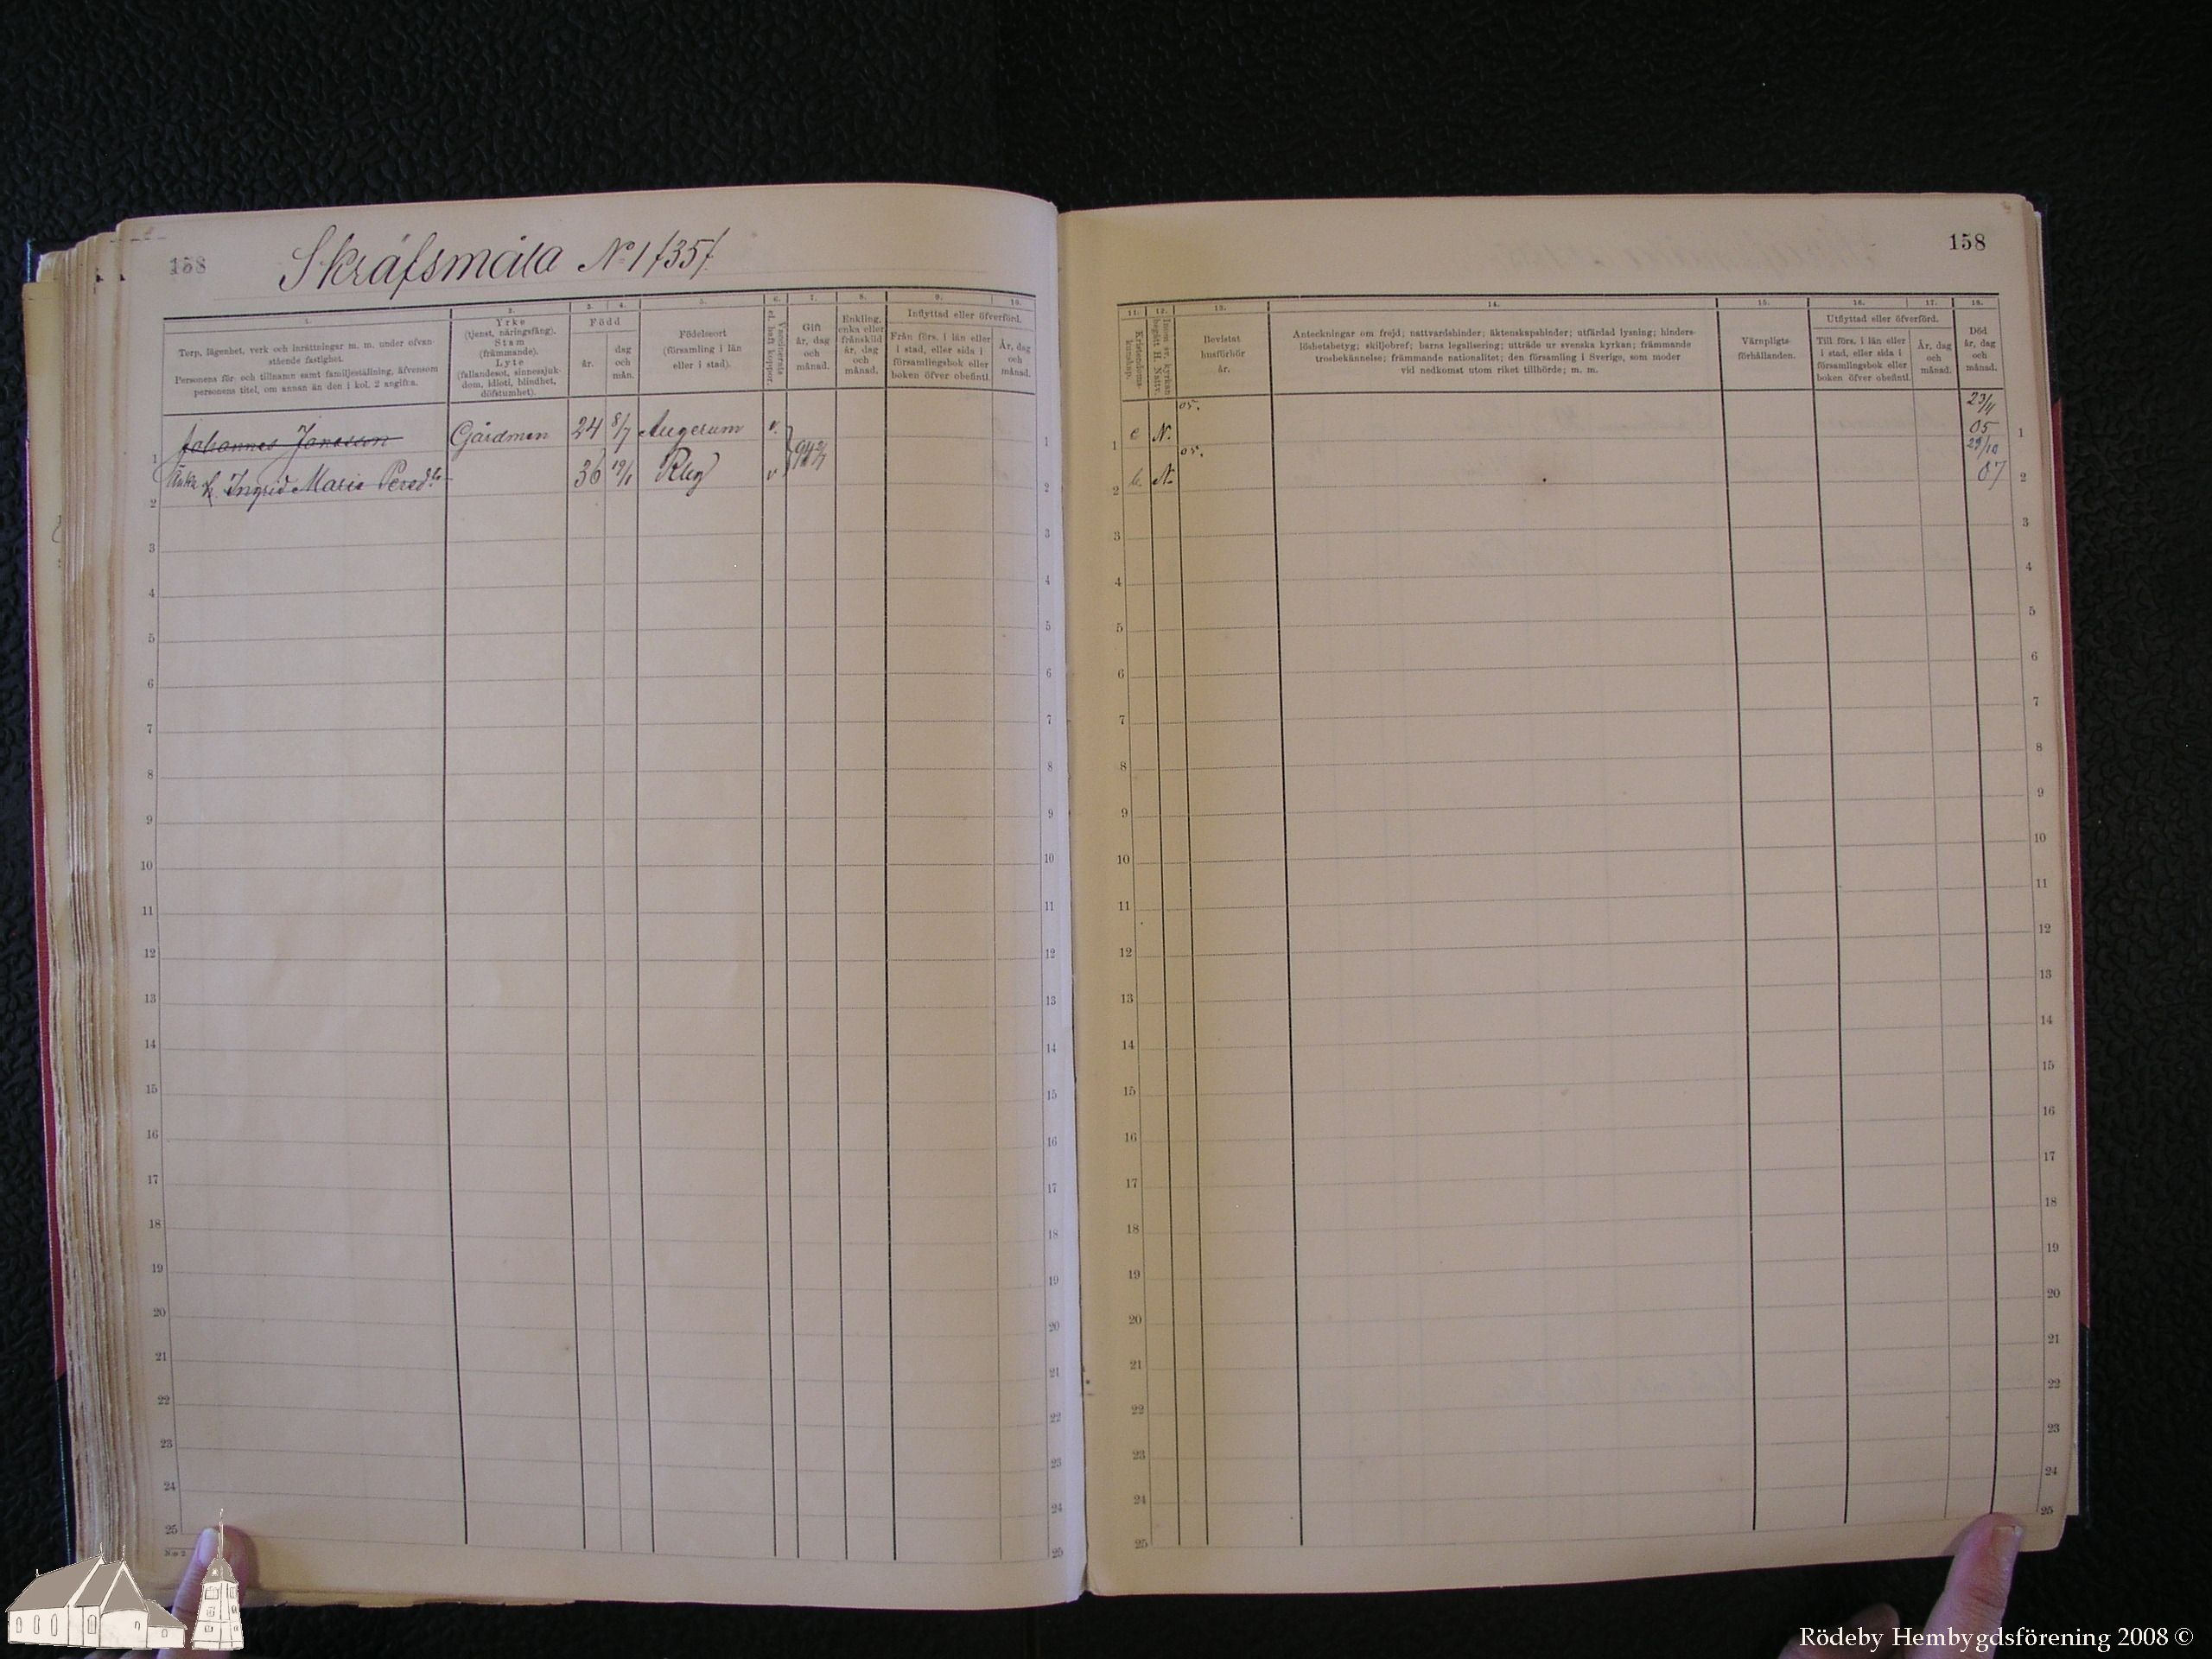 158
Skräfsmåla No 1 /35/
1.
Torp, lägenhet, verk och inrättningar m. m. under ofvan-
stående fastighet.
Personens för- och tillnamn samt familjeställning, äfvensom
personens titel, om annan än den i kol. 2 angifna.
2.
Yrke
(tjenst, näringsfång).
Stam
(främmande).
Lyte
(fallandesot, sinnessjuk-
dom, idioti, blindhet,
döfstumhet).
3. 4.
Född
år.
dag
och
mån.
5.
Födelseort
(församling i län
eller i stad).
6.
Vaccinerats
el. haft koppor.
7.
Gift
år, dag
och
månad.
8.
Enkling,
enka eller
frånskild
år, dag
och
månad.
9. 10.
Inflyttad eller öfverförd.
Från förs. i län eller
i stad, eller sida i
församlingsbok eller
boken öfver obefintl.
År, dag
och
månad.
Johannes Jonasson Gårdman 24 8/7 Augerum v.
Änka h. Ingrid Maria Persd:r 36 19/1 Rby v
1
2
3
4
5
6
7
8
9
10
11
12
13
14
15
16
17
18
19
20
21
22
23
24
25
158
11.
Kristendoms-
kunskap.
12.
Inom sv. kyrkan
begått H. Nattv.
13.
Bevistat
husförhör
år.
14.
Anteckningar om frejd; nattvardshinder; äktenskapshinder; utfärdad lysning; hinders-
löshetsbetyg; skiljobref; barns legalisering; utträde ur svenska kyrkan; främmande
trosbekännelse; främmande nationalitet; den församling i Sverige, som moder
vid nedkomst utom riket tillhörde; m. m.
15.
Värnpligts-
förhållanden.
16. 17.
Utflyttad eller öfverförd.
Till förs. i län eller
i stad, eller sida i
församlingsbok eller
boken öfver obefintl.
År, dag
och
månad.
18.
Död
år, dag
och
månad.
N. 05. 23/11 05
N. 05. 29/10 07
1
2
3
4
5
6
7
8
9
10
11
12
13
14
15
16
17
18
19
20
21
22
23
24
25
Rödeby Hembygdsförening 2008 ©